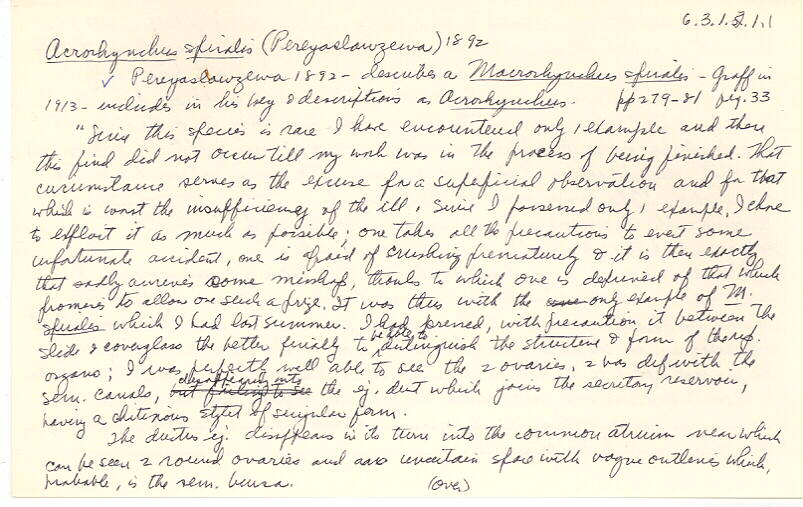 6.3.1.3.1.1
Acrorhynchus spiralis (Pereyaslawzewa) 1892
✓ Pereyaslawzewa 1892 - describes a Macrorhynchus spiralis - Graff in
1913 - includes in his key & descriptions as Acrorhynchus. pp 279-81 fig. 33
"Since this species is rare I have encountered only 1 example and then
this find did not occur till my work was in the process of being finished. That
circumstance serves as the excuse for a superficial observation and for that
which is worst the insufficiency of the ill. Since I possessed only 1 example, I chose
to exploit it as much as possible; one takes all the precautions to evert some
unfortunate accident, one is afraid of crushing prematurely & it is then exactly
that sadly arrives some mishap, thanks to which one is deprived of that which
promises to allow one such a prize. It was thus with the only example of M.
spiralis which I had last summer. I had pressed, with precaution it between the
slide & coverglass the better finally to be able to distinguish the structure & form of the rep.
organs; I was perfectly well able to see the 2 ovaries, 2 vas def with the
sem. canals, disappearing into the ej. duct which joins the secretory reservoir,
having a chitinous stylet of singular form.
The ductus ej. disappears in its turn into the common atrium near which
can be seen 2 round ovaries and an uncertain space with vague outlines which,
probable, is the sem. bursa. (over)